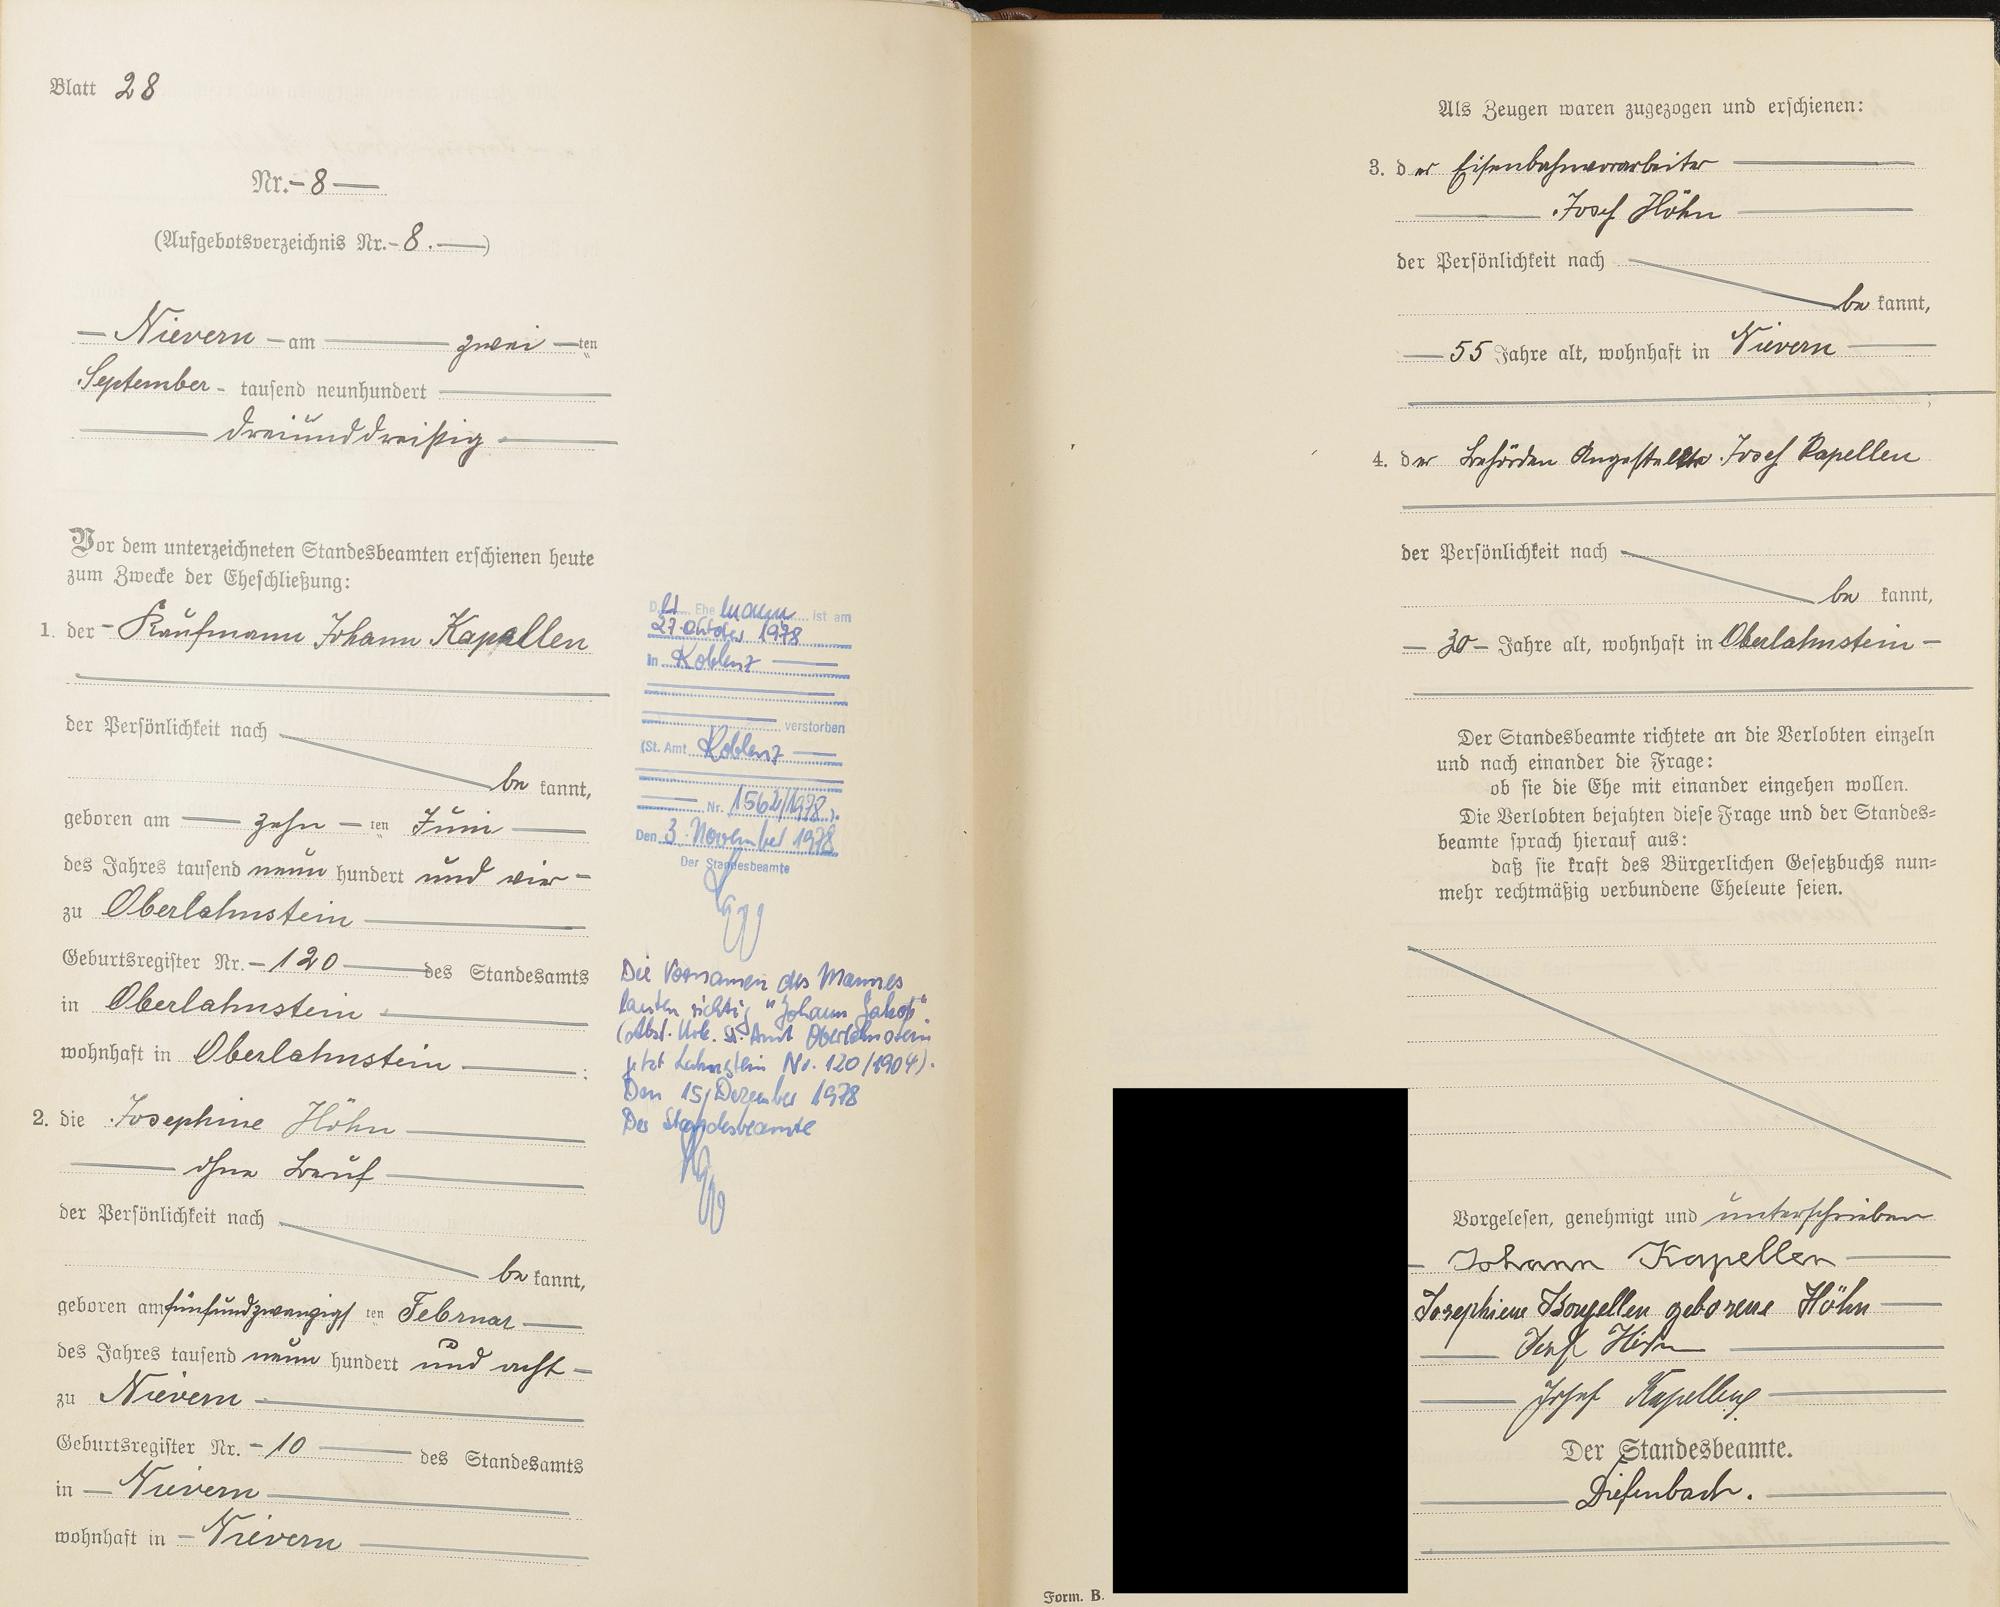 Blatt 28
Nr. – 8 —
(Aufgebotsverzeichnis Nr. – 8. —)
— Nievern — am — zwei — ten
September - tausend neunhundert —
— dreiunddreißig —
Vor dem unterzeichneten Standesbeamten erschienen heute
zum Zwecke der Eheschließung:
1. der – Kaufmann Johann Kapellen
der Persönlichkeit nach
be kannt,
geboren am — zehn — ten Juni —
des Jahres tausend neun hundert und vier –
zu Oberlahnstein —
Geburtsregister Nr. – 120 — des Standesamts
in Oberlahnstein —
wohnhaft in Oberlahnstein — ;
2. die Josephine Höhn —
— ohne Beruf —
der Persönlichkeit nach
be kannt,
geboren am fünfundzwanzigs ten Februar —
des Jahres tausend neun hundert und acht –
zu Nievern —
Geburtsregister Nr. – 10 — des Standesamts
in — Nievern —
wohnhaft in – Nievern —
D er Ehe mann ist am
27. Oktober 1978
in Koblenz —
verstorben
(St. Amt Koblenz —
— Nr. 1562/1978 ).
Den 3. November 1978
Der Standesbeamte
Die Vornamen des Mannes
lauten richtig "Johann Jakob".
(Abst. Urk. St. Amt Oberlahnstein
jetzt Lahnstein Nr. 120/1904).
Den 15. Dezember 1978
Der Standesbeamte
Als Zeugen waren zugezogen und erschienen:
3. d er Eisenbahnvorarbeiter —
— Josef Höhn —
der Persönlichkeit nach
be kannt,
— 55 Jahre alt, wohnhaft in Nievern —
;
4. d er Behörden Angestellte Josef Kapellen
der Persönlichkeit nach
be kannt,
— 30 – Jahre alt, wohnhaft in Oberlahnstein –
Der Standesbeamte richtete an die Verlobten einzeln
und nach einander die Frage:
ob sie die Ehe mit einander eingehen wollen.
Die Verlobten bejahten diese Frage und der Standes-
beamte sprach hierauf aus:
daß sie kraft des Bürgerlichen Gesetzbuchs nun-
mehr rechtmäßig verbundene Eheleute seien.
Vorgelesen, genehmigt und unterschrieben
– Johann Kapellen —
Josephiene Kapellen geborene Höhn —
— Josef Höhn —
— Josef Kapellen —
Der Standesbeamte.
— Diefenbach. —
Form. B.